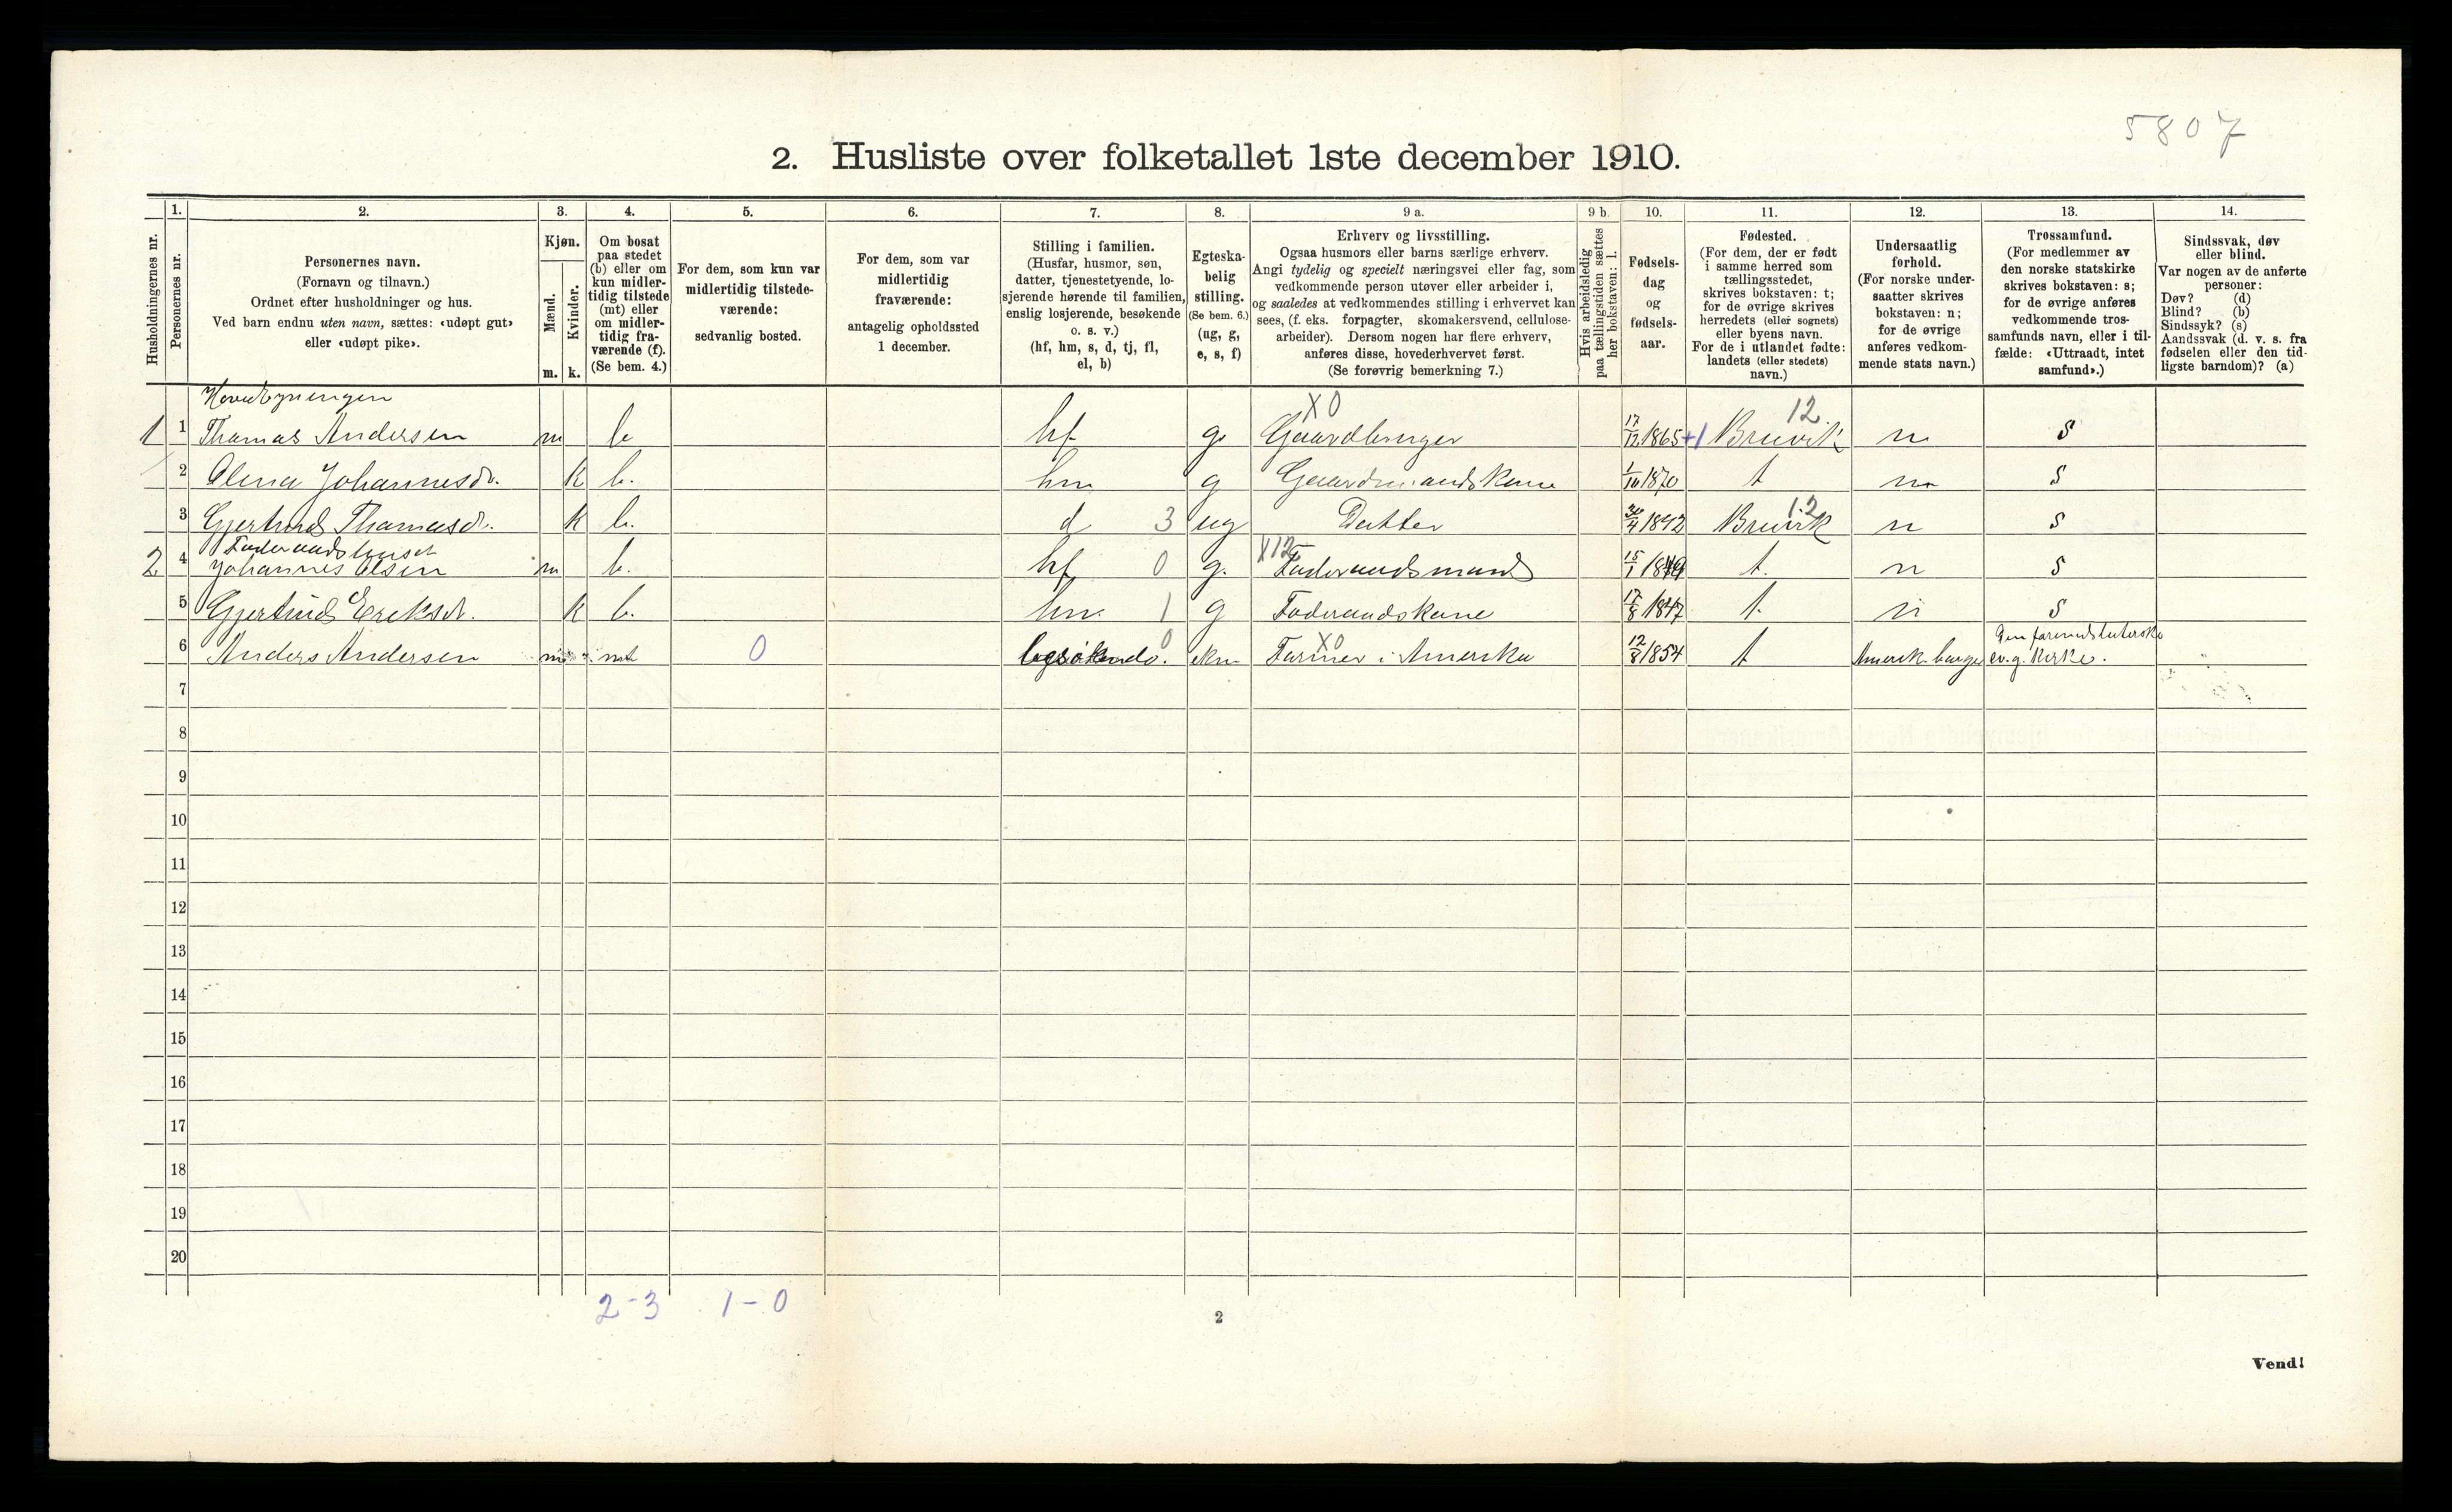 5807
2. Husliste over folketallet 1ste december 1910.
1. 2. 3. 4. 5. 6. 7. 8. 9 a. 9 b. 10. 11. 12. 13. 14.
Husholdningernes nr.
Personernes nr.
Personernes navn.
(Fornavn og tilnavn.)
Ordnet efter husholdninger og hus.
Ved barn endnu uten navn, sættes: «udøpt gut»
eller «udøpt pike».
Kjøn.
Mænd.
Kvinder.
m. k.
Om bosat
paa stedet
(b) eller om
kun midler-
tidig tilstede
(mt) eller
om midler-
tidig fra-
værende (f).
(Se bem. 4.)
For dem, som kun var
midlertidig tilstede-
værende:
sedvanlig bosted.
For dem, som var
midlertidig
fraværende:
antagelig opholdssted
1 december.
Stilling i familien.
(Husfar, husmor, søn,
datter, tjenestetyende, lo-
sjerende hørende til familien,
enslig losjerende, besøkende
o. s. v.)
(hf, hm, s, d, tj, fl,
el, b)
Egteska-
belig
stilling.
(Se bem. 6.)
(ug, g,
e, s, f)
Erhverv og livsstilling.
Ogsaa husmors eller barns særlige erhverv.
Angi tydelig og specielt næringsvei eller fag, som
vedkommende person utøver eller arbeider i,
og saaledes at vedkommendes stilling i erhvervet kan
sees, (f. eks. forpagter, skomakersvend, cellulose-
arbeider). Dersom nogen har flere erhverv,
anføres disse, hovederhvervet først.
(Se forøvrig bemerkning 7.)
Hvis arbeidsledig
paa tællingstiden sættes
her bokstaven: l.
Fødsels-
dag
og
fødsels-
aar.
Fødested.
(For dem, der er født
i samme herred som
tællingsstedet,
skrives bokstaven: t;
for de øvrige skrives
herredets (eller sognets)
eller byens navn.
For de i utlandet fødte:
landets (eller stedets)
navn.)
Undersaatlig
forhold.
(For norske under-
saatter skrives
bokstaven: n;
for de øvrige
anføres vedkom-
mende stats navn.)
Trossamfund.
(For medlemmer av
den norske statskirke
skrives bokstaven: s;
for de øvrige anføres
vedkommende tros-
samfunds navn, eller i til-
fælde: «Uttraadt, intet
samfund».)
Sindssvak, døv
eller blind.
Var nogen av de anførte
personer:
Døv? (d)
Blind? (b)
Sindssyk? (s)
Aandssvak (d. v. s. fra
fødselen eller den tid-
ligste barndom)? (a)
Hovedbyningen X0 12
1 1 Thomas Andersen m b hf g. Gaardbruger 17/12 1865 +1 Bruvik n s
2 Olena Johannesdr. k b. hm g Gaardmandskone 1/10 1870 t n s
12
3 Gjertrud Thomasdr. k b. d 3 ug Datter 30/4 1892 Bruvik n s
Foderaadshuset X12
2 4 Johannes Olsen m b. hf 0 g. Foderaadsmand 15/1 1849 t. n s
5 Gjertrud Eriksdr. k b. hm. 1 g Foderaadskone 17/8 1847 t. n s
0 X0
6 Anders Andersen m mt 0 besøkende. Farmer i Amerika 12/8 1854 t Amerik. borger ev. g. Kirke.
7
8
9
10
11
12
13
14
15
16
17
18
19
20
2-3 1-0
2
Vend!